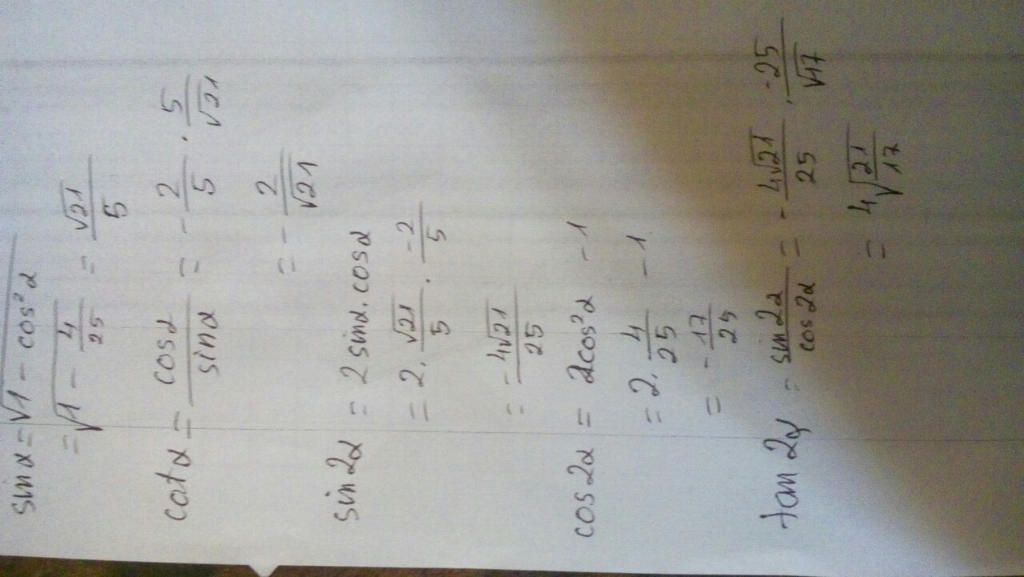 sinα = √(1 - cos²α)
= √(1 - 4/25) = √21/5
cotα = cosα/sinα = - 2/5 · 5/√21
= - 2/√21
sin2α = 2 sinα · cosα
= 2 · √21/5 · -2/5
= -4√21/25
cos2α = 2cos²α - 1
= 2 · 4/25 - 1
= - 17/25
tan2α = sin2α/cos2α = - 4√21/25 · -25/√17
= 4√(21/17)